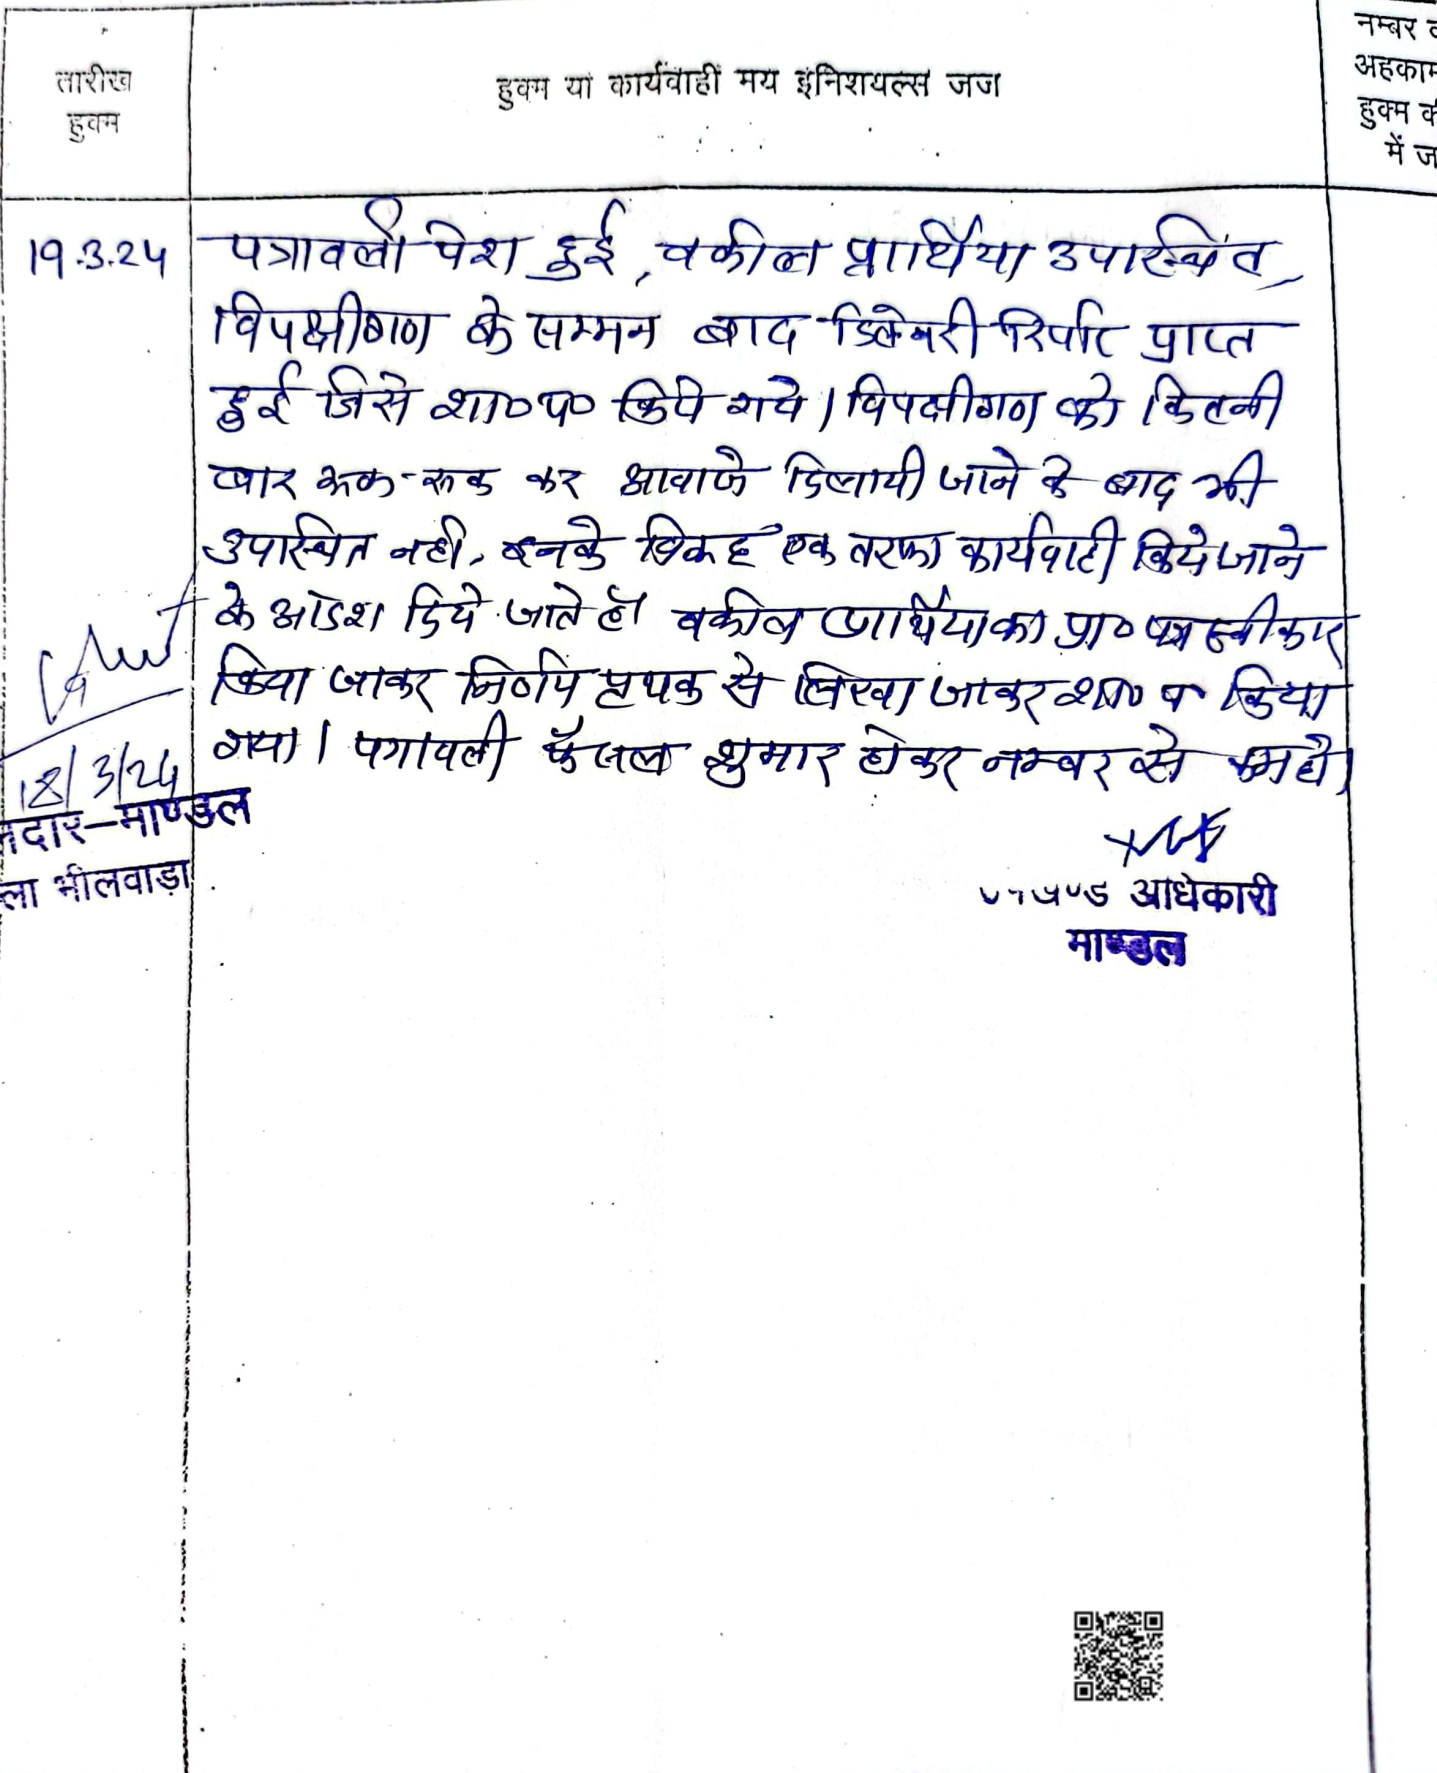 तारीख
हुक्म
हुक्म या कार्यवाही मय इनिशयल्स जज
नम्बर
अहकाम
हुक्म की
में
19.3.24
पत्रावली पेश हुई, वकील प्रार्थिया उपस्थित,
विपक्षीगण के सम्मन बाद डिलेवरी रिर्पोट प्राप्त
हुई जिसे शा०प० किये गये। विपक्षीगण को कितनी
बार रूक-रूक कर आवाजे दिलायी जाने के बाद भी
उपस्थित नही, इनके विरूद्ध एक तरफा कार्यवाही किये जाने
के आदेश दिये जाते है। वकील प्रार्थिया का प्रा० पत्र स्वीकार
किया जाकर निर्णय पृथक से लिखा जाकर शा० प किया
गया। पत्रावली फैसल शुमार होकर नम्बर से कम हो।
18/3/24
दार-माण्डल
ला भीलवाड़ा
अधिकारी
माण्डल